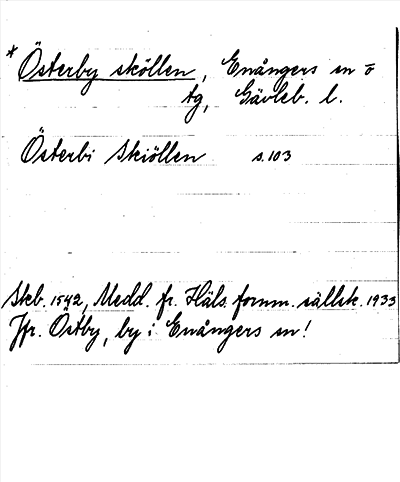 * Österby sköllen, Enångers sn o
tg, Gävleb. l.
Österbi Skiöllen s. 103
Skb. 1542, Medd. fr. Häls. fornm. sällsk. 1933
Jfr. Östby, by i Enångers sn!